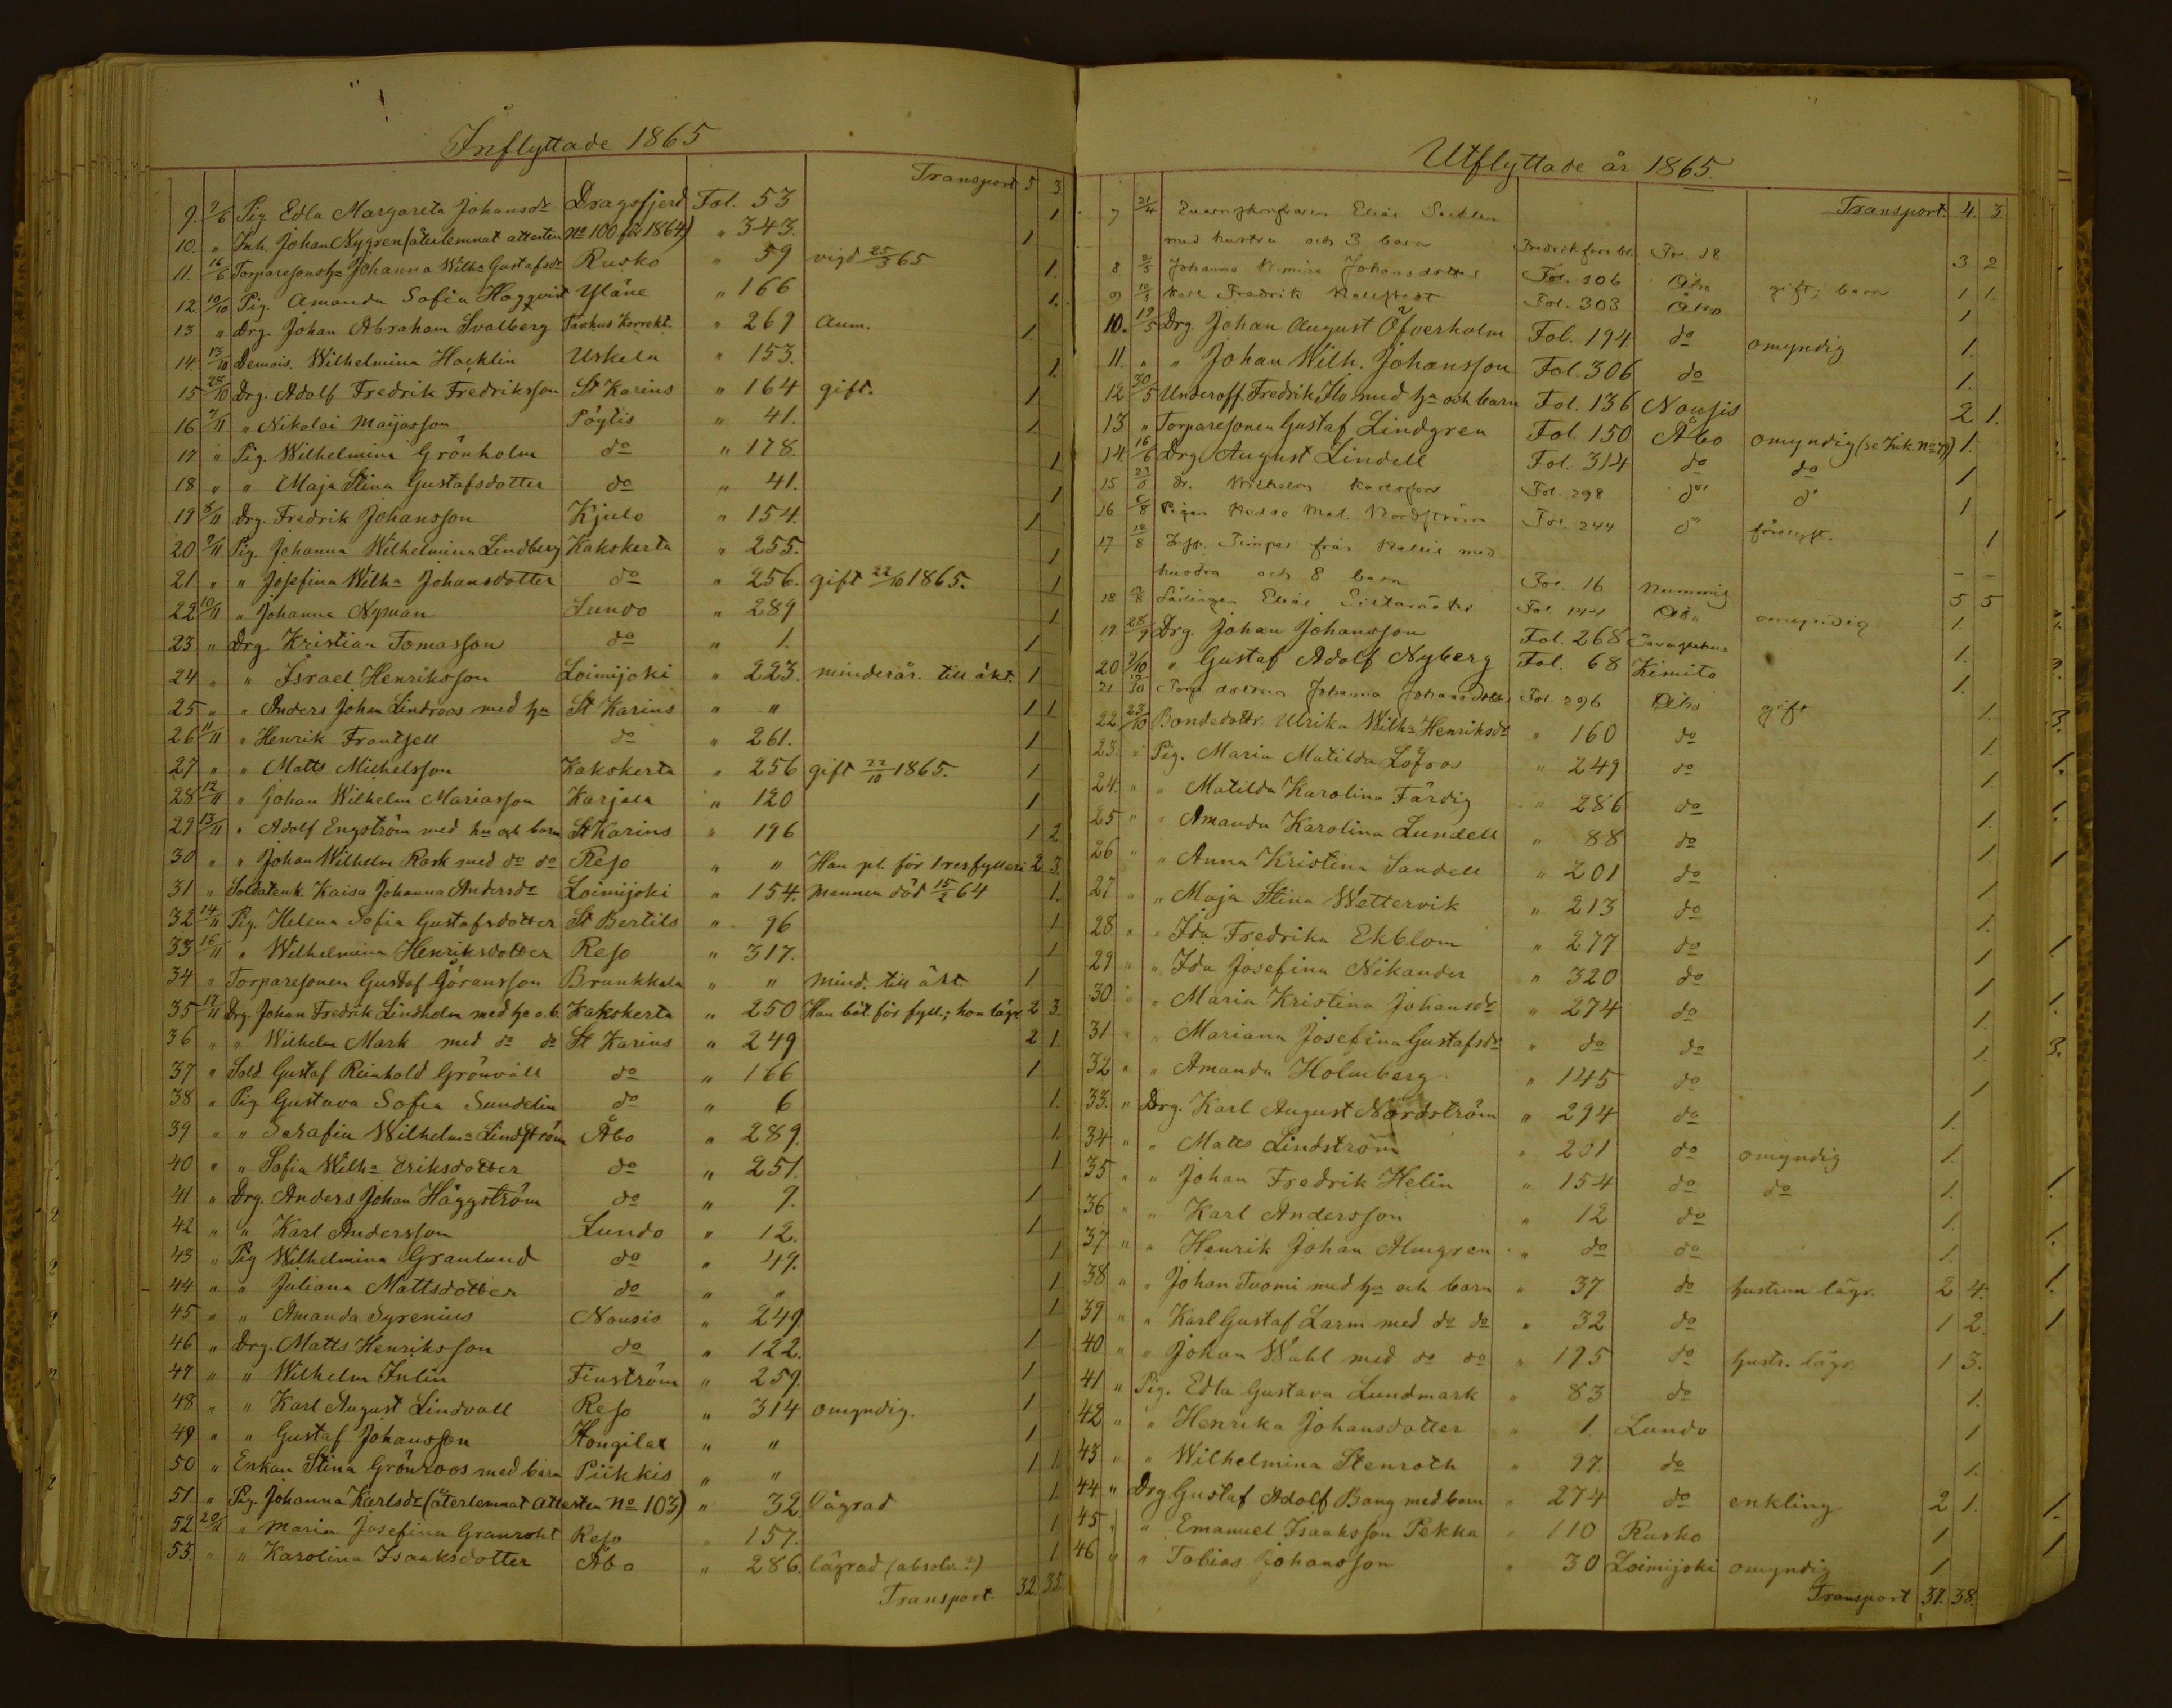 Inflyttade 1865
Transport 5 3
9. 7/6 Pig. Edla Margareta Johansdr Dragsfjerd Fol. 53 1
10. " Inh. Johan Nygren (återlemnat attesten No 100 för 1864) " 343. 1
11. 16/6 Torparesonshu Johanna Wilha Gustafsdr Rusko " 59 vigd 25/3 65 1.
12 10/10 Pig. Amanda Sofia Haggqvist Yläne " 166 1.
13 " Drg. Johan Abraham Svalberg Tavhus Korrekt. " 269 anm. 1
14. 13/10 Demois. Wilhelmina Hocklin Uskela " 153. 1.
15 28/10 Drg. Adolf Fredrik Fredriksson St Karins " 164 gift. 1
16 2/11 " Nikolai Maijasson Pöytis " 41. 1
17 " Pig. Wilhelmina Grönholm do " 178. 1
18 " " Maja Stina Gustafsdotter do " 41. 1
19 8/11 Drg. Fredrik Johansson Kjulo " 154. 1
20 9/11 Pig. Johanna Wilhelmina Lindberg Kakskerta " 255. 1
21 " " Josefina Wilha Johansdotter do " 256. gift 22/10 1865. 1
22 10/11 " Johanna Nyman Lundo " 289 1
23 " Drg. Kristian Tomasson do " 1. 1
24 " " Israel Henriksson Loimijoki " 223. minderår. till äkt. 1
25 " " Anders Johan Lindroos med hu St Karins " " 1 1
26 11/11 " Henrik Frantzell do " 261. 1
27 " " Matts Michelsson Kakskerta " 256 gift 22/10 1865. 1
28 12/11 " Johan Wilhelm Mariasson Karjala " 120 1
29 13/11 " Adolf Engström med hu och barn St Karins " 196 1 2
30 " " Johan Wilhelm Rask med do do Reso " " Han pl. för 1 res fylleri 2 3.
31 " Soldatenk. Kaisa Johanna Andersdr Loimijoki " 154. Mannen död 15/2 64 1.
32 14/11 Pig. Helena Sofia Gustafsdotter St Bertils " 96 1
33 16/11 " Wilhelmina Henriksdotter Reso " 317. 1
34 " Torparesonen Gustaf Göransson Brunkkala " " Mind. till äkt. 1
35 17/11 Drg. Johan Fredrik Lindholm med hu o. b. Kakskerta " 250 Han böt. för fyll.; hon lägr 2 3.
36 " " Wilhelm Mark med do do St Karins " 249 2 1.
37 " Sold. Gustaf Reinhold Grönvall do " 166 1
38 " Pig Gustava Sofia Sundelin do " 6 1.
39 " " Serafia Wilhelma Lindström Åbo " 289. 1.
40 " " Sofia Wilha Eriksdotter do " 251. 1
41 " Drg. Anders Johan Häggström do " 9. 1
42 " " Karl Andersson Lundo " 12. 1
43 " Pig Wilhelmina Granlund do " 49. 1
44 " " Juliana Mattsdotter do " " 1
45 " " Amanda Syrenius Nousis " 249 1
46 " Drg. Matts Henriksson do " 122. 1
47 " " Wilhelm Inlin Finström " 259. 1
48 " " Karl August Lindvall Reso " 314 omyndig. 1
49 " " Gustaf Johansson Hongilax " " 1
50 " Enkan Stina Grönroos med barn Piikkis " " 1 1
51 " Pig. Johanna Karlsdr (återlemnat attesten No 103) " 32. lägrad 1.
52 20/11 " Maria Josefina Granroht Reso " 157. 1
53. " " Karolina Isaaksdotter Åbo " 286. lägrad (absolv.?) 1
Transport. 32. 35.
Utflyttade år 1865.
Transport. 4. 3.
7 21/4 Elias
med hustru och 3 barn Fol. 18 3 2
8 2/5 Johanna Johansdotter Fol. 306 Åbo gift; barn 1 1.
9 10/5 Karl Fredrik Fol. 303 Åbo 1
10. 19/5 Drg. Johan August Öfverholm Fol. 194 do omyndig 1.
11. " " Johan Wilh. Johansson Fol. 306 do 1.
12 30/5 Underoff. Fredrik Flo med hu och barn Fol. 136 Nousis 2 1.
13 " Torparesonen Gustaf Lindgren Fol. 150 Åbo omyndig (se Ink. No 79) 1.
14 16/6 Drg. August Lindell Fol. 314 do do 1
15 Wilhelm Karlsson Fol. 298 do do 1
16 6/8 Pigan Hedda Mat. Nordström Fol. 244 do 1
17 10/8 Insp. från med
hustru och 8 barn Fol. 16 5 5
18 Elias Fol. 144 Åbo omyndig 1.
19 28/9 Drg. Johan Johansson Fol. 268 Tavastehus 1.
20 9/10 " Gustaf Adolf Nyberg Fol. 68 Kimito 1.
21 Torp. dottren Johanna Johansdotter Fol. 296 Åbo gift 1.
22 23/10 Bondedottr. Ulrika Wilha Henriksdr " 160 do 1.
23. " Pig. Maria Matilda Löfros " 249 do 1.
24. " " Matilda Karolina Färdig " 286 do 1.
25 " " Amanda Karolina Lundell " 88 do 1.
26 " " Anna Kristina Sandell " 201 do 1.
27 " " Maja Stina Wettervik " 213 do 1.
28 " " Ida Fredrika Ekblom " 277 do 1
29 " " Ida Josefina Nikander " 320 do 1
30 " " Maria Kristina Johansdr " 274 do 1.
31 " " Mariana Josefina Gustafsdr " do do 1.
32 " " Amanda Holmberg " 145 do 1
33. " Drg. Karl August Nordström " 294. do 1.
34 " " Matts Lindström " 201 do omyndig 1.
35 " " Johan Fredrik Helin " 154 do do 1.
36 " " Karl Andersson " 12 do 1.
37 " " Henrik Johan Almgren " do do 1.
38 " " Johan Tuomi med hu och barn " 37 do hustrun lägr. 2 4.
39 " " Karl Gustaf Larm med do do " 32 do 1 2.
40 " " Johan Wahl med do do " 195 do hustr. lägr. 1 3.
41 " Pig. Edla Gustava Lundmark " 83 do 1.
42 " " Henrika Johansdotter " 1. Lundo 1
43 " " Wilhelmina Stenroth " 97. do 1.
44 " Drg Gustaf Adolf Bang med barn " 274 do enkling 2 1.
45 " " Emanuel Isaaksson Pekka " 110 Rusko 1
46 " " Tobias Johansson " 30 Loimijoki omyndig 1
Transport 37. 38.